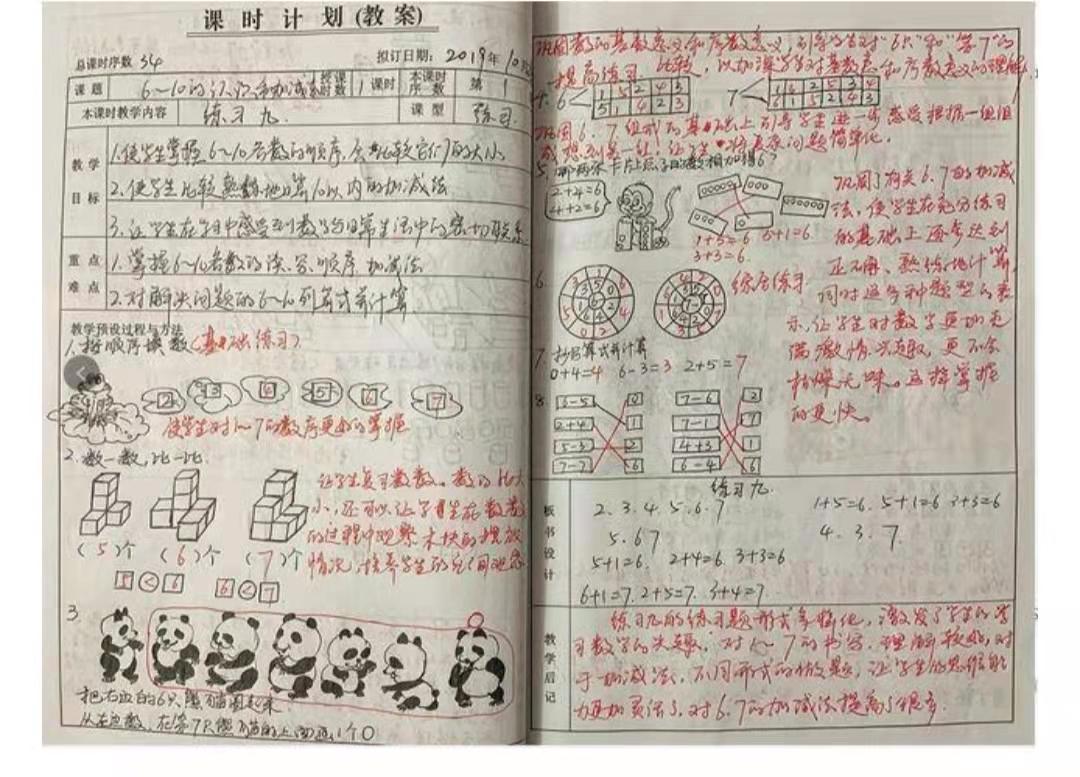 课时计划(教案)
总课时序数 34 拟订日期: 2019年10
课题 6~10的认识和加减法 授课时数 1课时 本课时序数 第1
本课时教学内容 练习九. 课型 练习.
教学目标
1.使学生掌握6~10各数的顺序,会比较它们的大小
2.使学生比较熟练地口算10以内的加减法
3.让学生在学习中感受到数学与日常生活中的密切联系
重点难点
1.掌握6~10各数的读、写、顺序、加减法
2.对解决问题的6~10列算式并计算
教学预设过程与方法
1.按顺序填数(基础练习)
2 3 4 5 6 7
使学生对1~7的数序更好的掌握
2.数一数,比一比.
(5)个 (6)个 (7)个
5<6 6<7
让学生复习数数。数的比大
小,还可以让学生在数数
的过程中观察木块的摆放
情况,培养学生的空间观念
3
把右边的6只熊猫圈起来
从左边数,在第7只熊猫的上面画1个O
巩固数的基数意义和序数意义,引导学生对"6只"和"第7"的
比较,以加深学生对基数意和序数意义的理解
提高练习
4. 6 1 5 2 4 3
5 1 4 2 3
7 1 6 2 5 3 4
6 1 5 2 4 3
巩固6、7组成的基础上引导学生进一步感受把握一组组
将复杂问题简单化。
5.哪两张卡片上点子的数相加得6?
2+4=6
4+2=6
1+5=6 5+1=6.
3+3=6.
巩固了有关6.7的加减
法,使学生在充分练习
的基础上逐步达到
正确、熟练地计算,
同时这多种题型的表
示,让学生对数学更加充
满激情兴趣,更不会
枯燥无味。这样掌握
的更快。
6. 综合练习
7. 抄写算式并计算
0+4=4 6-3=3 2+5=7
8.
6-5 0 7-6 2
2+4 1 7-1 7
5-3 2 4+3 1
7-7 6 6-4 6
板书设计
练习九
2. 3. 4. 5. 6. 7 1+5=6. 5+1=6 3+3=6
5. 6 7 4. 3. 7.
5+1=6. 2+4=6 3+3=6
6+1=7. 2+5=7. 3+4=7.
教学后记
练习九的练习题形式多样化,激发了学生的学
习数学的兴趣,对1~7的书写,理解较好,对
于加减法,不同形式的做题,让学生的思维能
力更加灵活了,对6.7的加减法提高了很多.